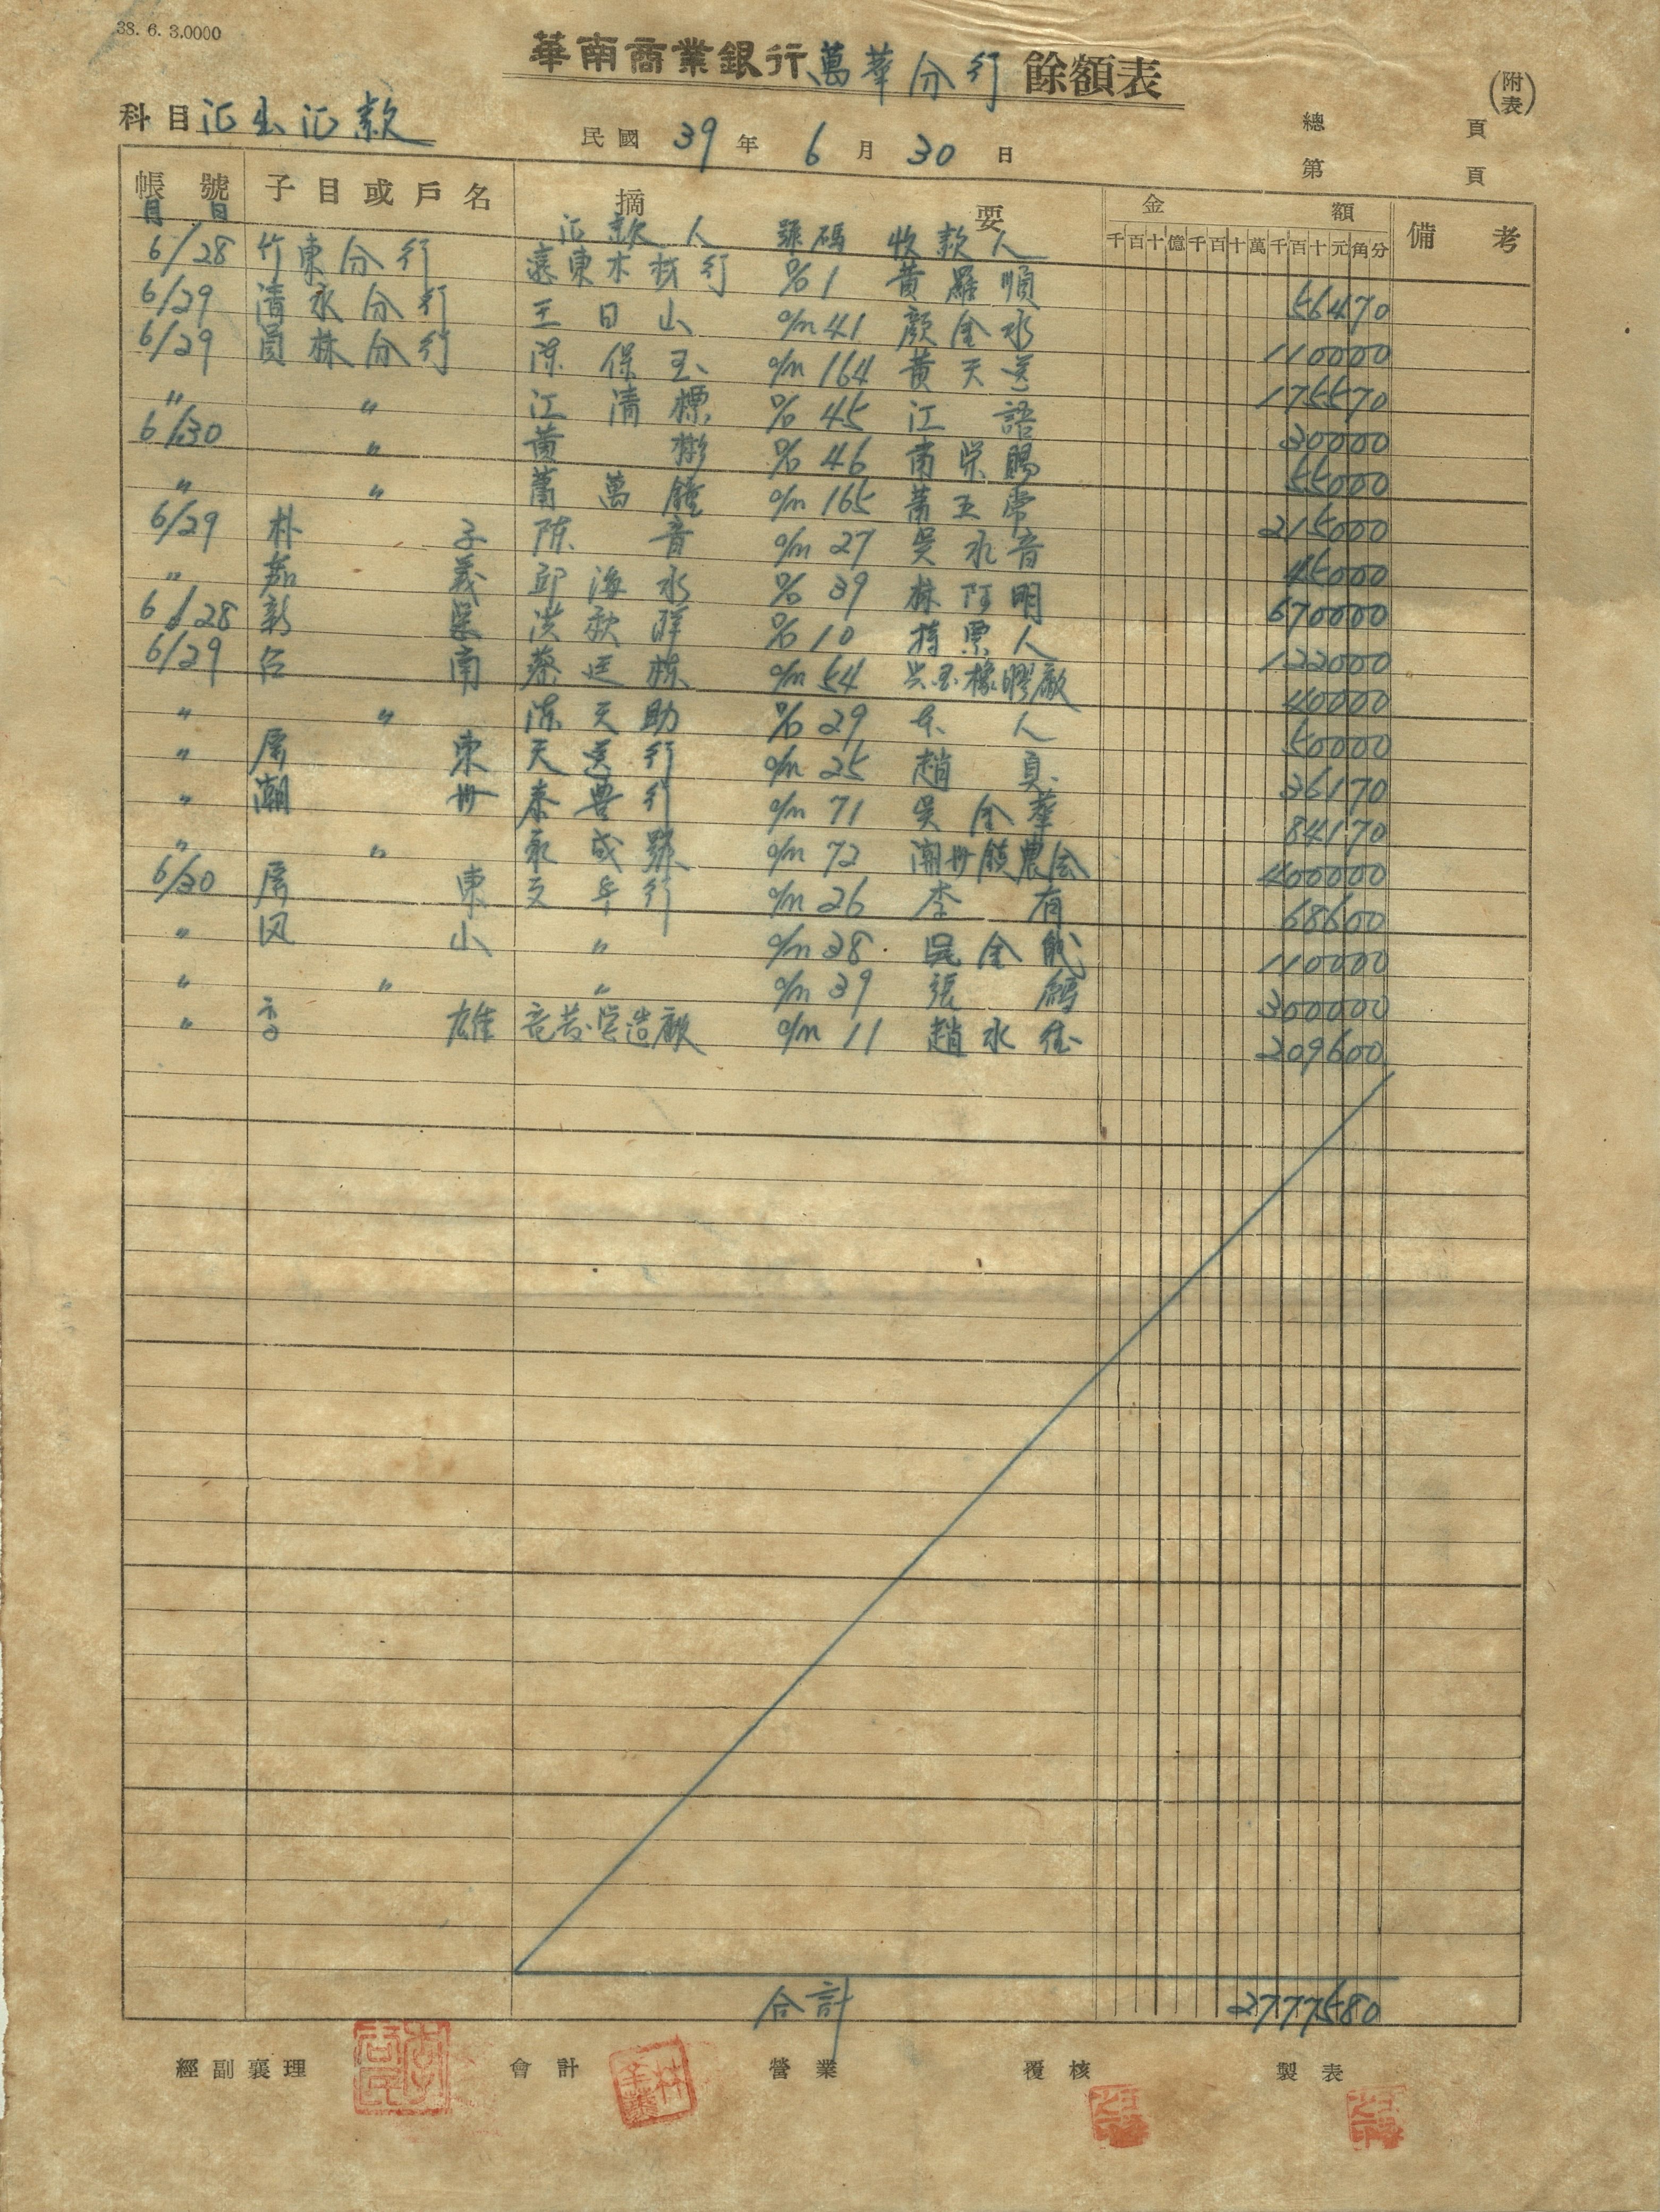 38. 6. 3.0000
華南商業銀行萬華分行 餘額表
(附表)
科目 汇出汇款
民國 39 年 6 月 30 日
總 頁
第 頁
帳號 子目或戶名 摘要 金額 備考
月 日 汇款人 號碼 收款人 千百十億千百十萬千百十元角分
6/28 竹東分行 遠東木材行 % 1 黄羅順 56470
6/29 清水分行 王日山 o/m 41 顏金水 110000
6/29 員林分行 陳保玉 o/m 164 黄天送 175570
〃 〃 江清標 % 45 江語 30000
6/30 〃 黄彬 % 46 南栄賜 55000
〃 〃 蕭萬鐘 o/m 165 蕭五常 215000
6/29 朴子 陈音 o/m 27 吳水音 45000
〃 嘉義 邱海水 % 39 林阿明 670000
6/28 新営 洪 % 10 持票人 122000
6/29 台南 蔡廷棟 o/m 54 橡膠廠 40000
〃 〃 陈天助 % 29 本人 50000
〃 屏東 天送行 o/m 25 趙真 36170
〃 潮州 泰豊行 o/m 71 吳金華 84170
〃 〃 永成號 o/m 72 潮州鎮農会 400000
6/30 屏東 行 o/m 26 李有 68600
〃 凤山 〃 o/m 38 吳金 110000
〃 〃 〃 o/m 39 張 300000
〃 雄 営造廠 o/m 11 趙水 209600
合計 2777580
經副襄理 會計 營業 覆核 製表